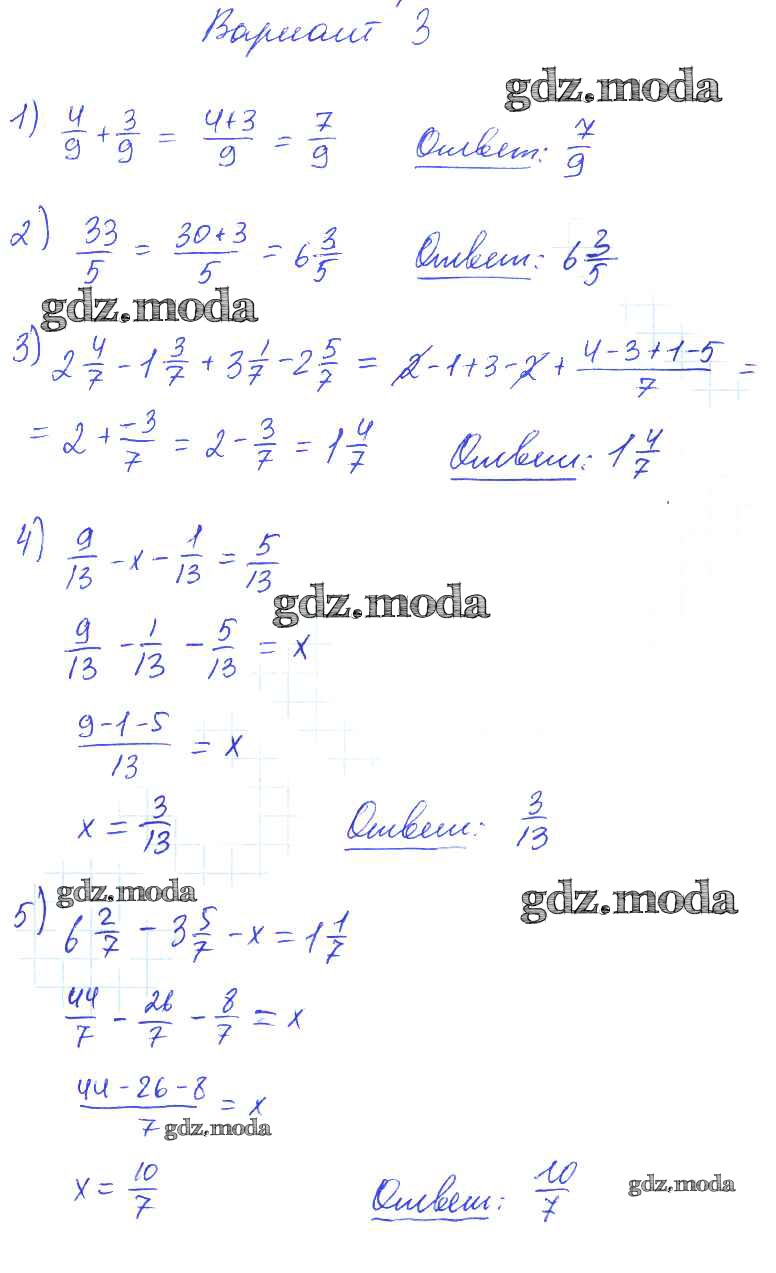 Вариант 3
gdz.moda
1) 4/9 + 3/9 = (4+3)/9 = 7/9 Ответ: 7/9
2) 33/5 = (30+3)/5 = 6 3/5 Ответ: 6 3/5
gdz.moda
3) 2 4/7 - 1 3/7 + 3 1/7 - 2 5/7 = 2 - 1 + 3 - 2 + (4-3+1-5)/7 =
= 2 + -3/7 = 2 - 3/7 = 1 4/7 Ответ: 1 4/7
4) 9/13 - x - 1/13 = 5/13
gdz.moda
9/13 - 1/13 - 5/13 = x
(9-1-5)/13 = x
x = 3/13 Ответ: 3/13
gdz.moda
gdz.moda
5) 6 2/7 - 3 5/7 - x = 1 1/7
44/7 - 26/7 - 8/7 = x
(44-26-8)/7 = x
gdz.moda
x = 10/7 Ответ: 10/7
gdz.moda